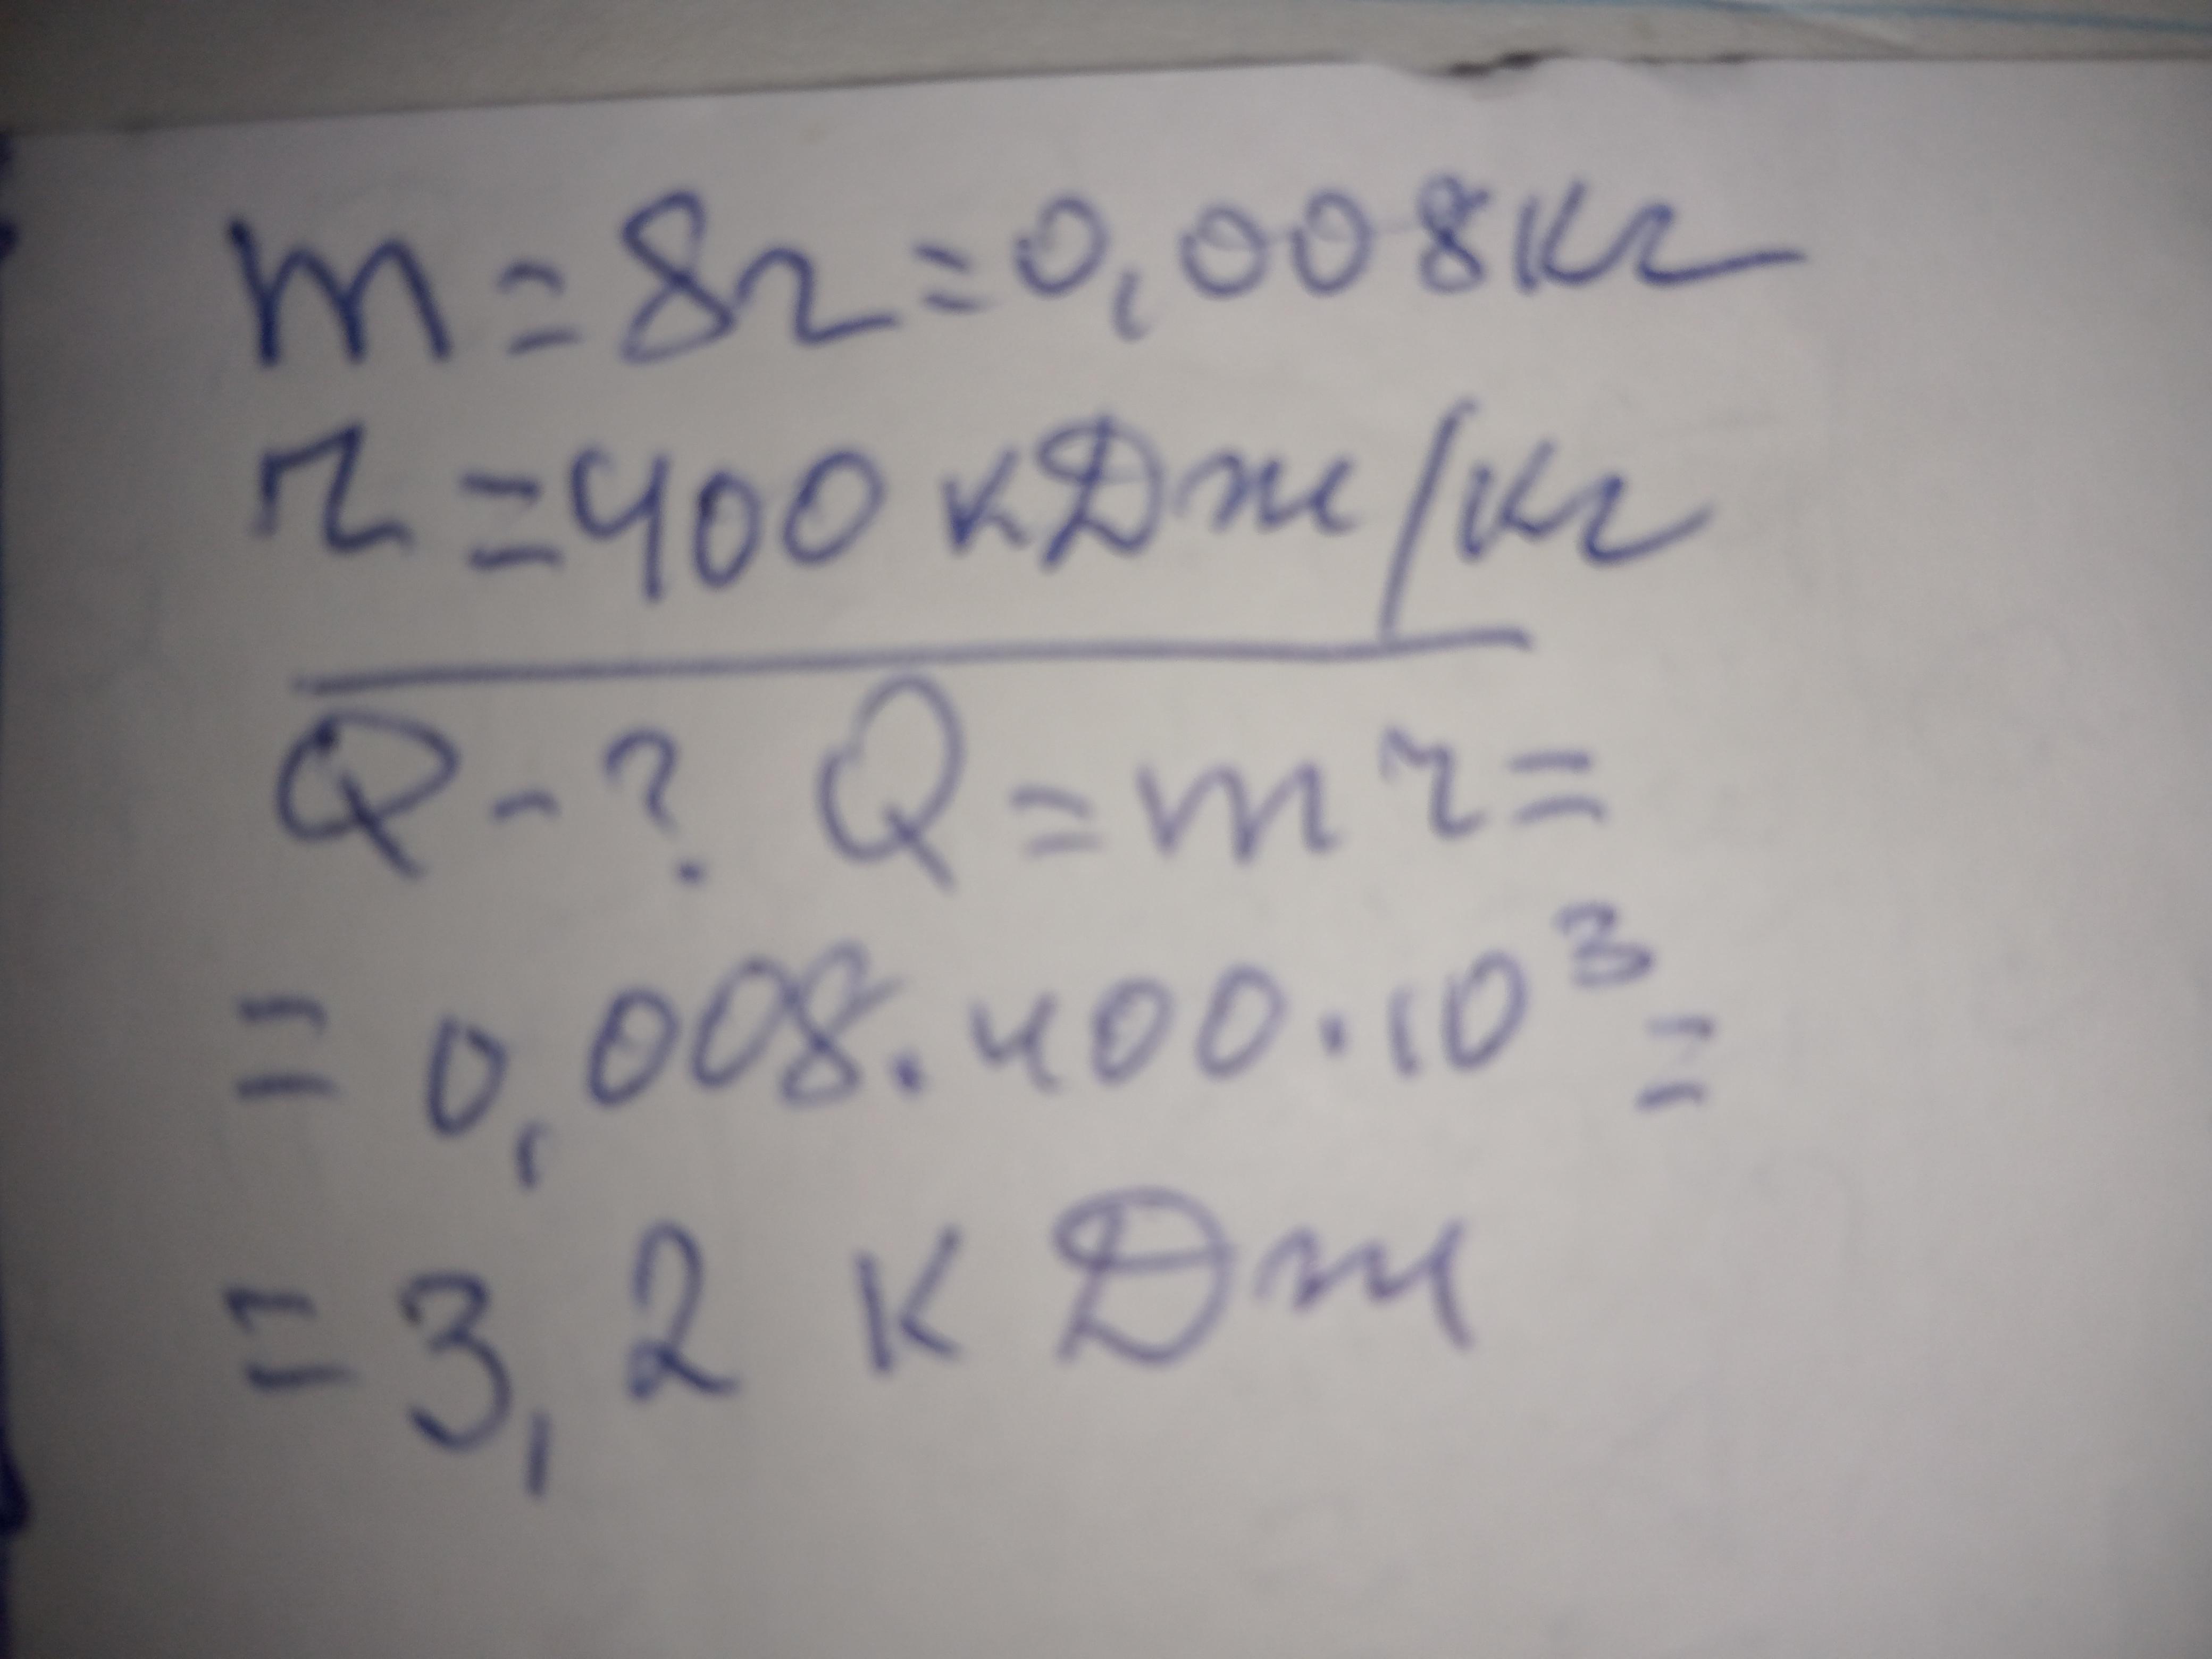 m = 8г = 0,008 кг
r = 400 кДж/кг
Q - ? Q = m r =
= 0,008 · 400 · 10³ =
= 3,2 кДж